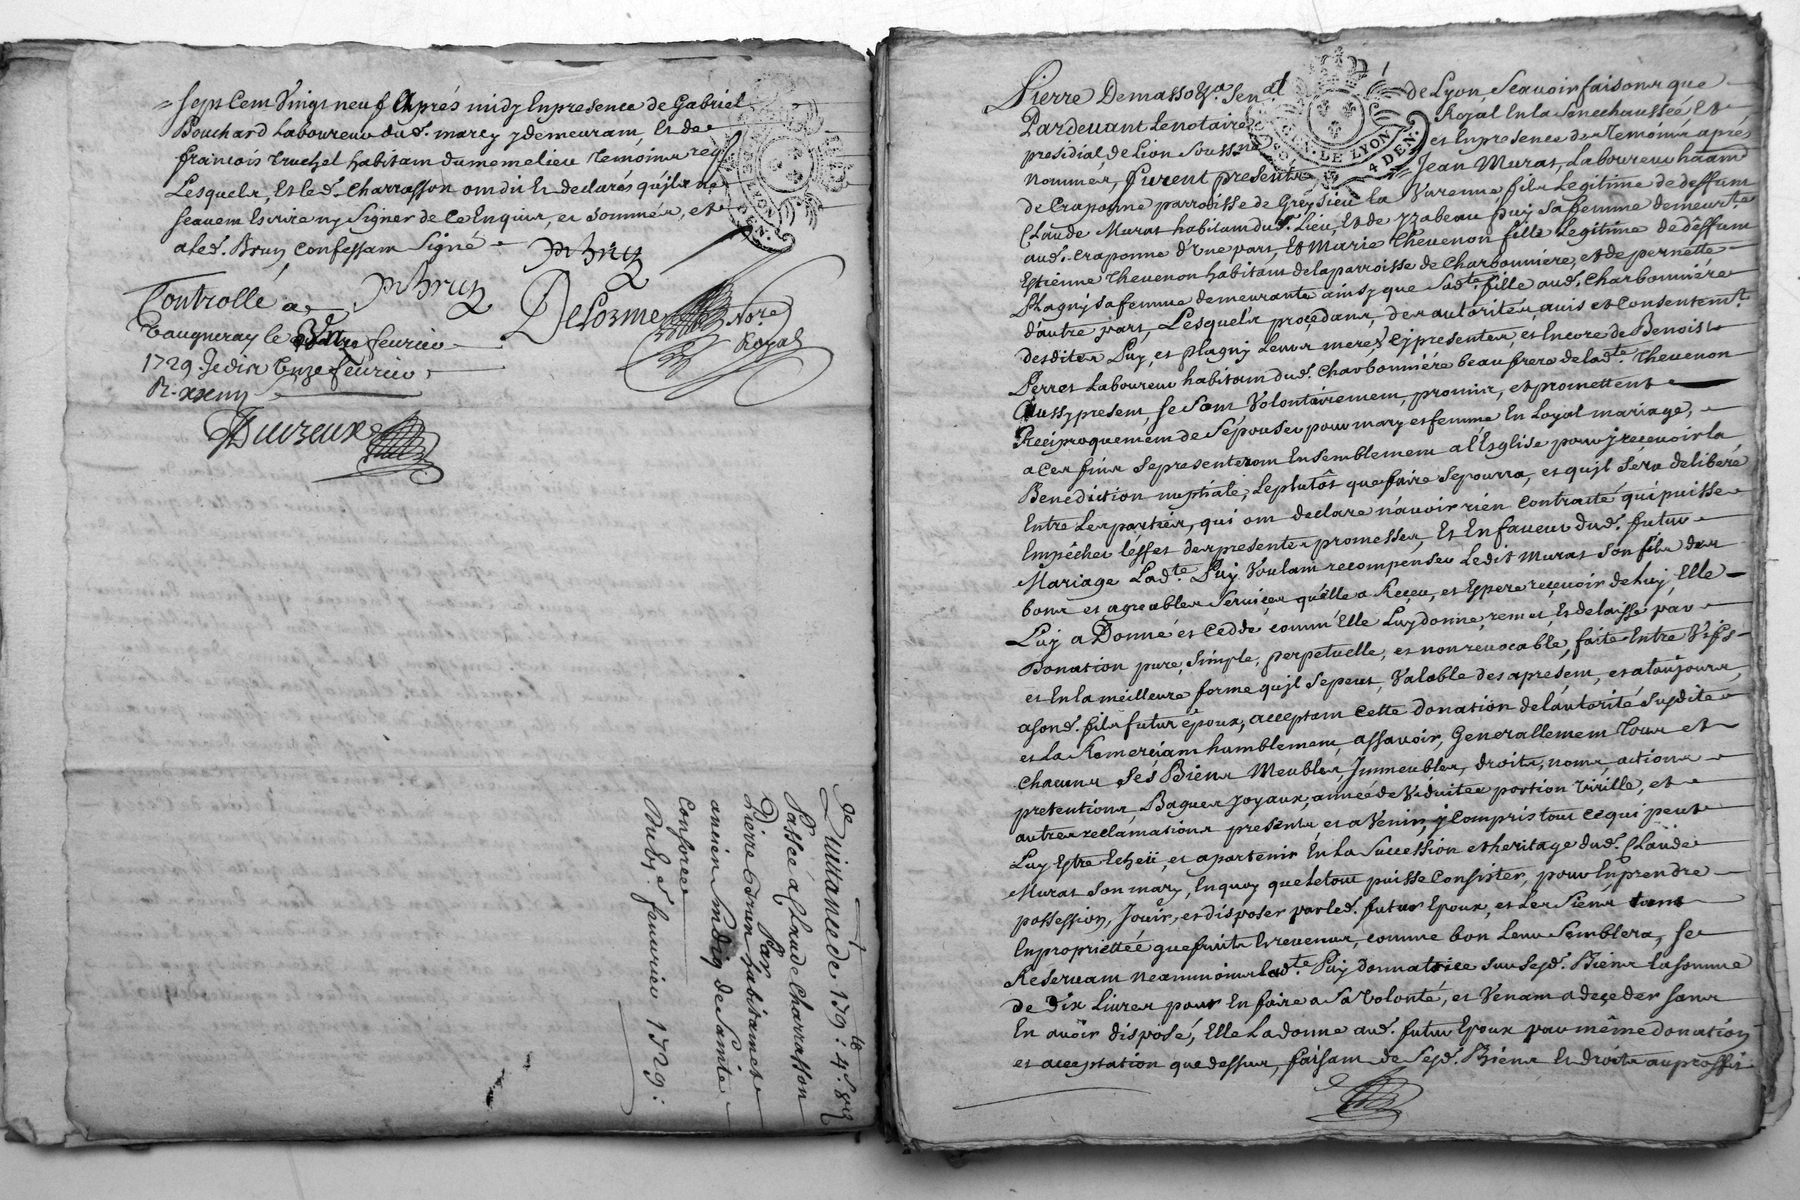 sept Cent Vingt neuf Après midy Enpresence de Gabriel
Bouchard Laboureur dud. marcy y demeurant, Et de
françois Truchet habitant dumeme lieu Temoins req
Lesquels, Et led. Charrasson ont dit Et declarés qu'ils ne
scavent Escrire ny Signer de Ce Enquis, et Sommés, et
a led. Brun Confessant Signé
Controllé a
P. Brun
Delorme
Nore
Royal
Vaugneray le feurier
1729 Jedix Onze feurier
R. xxiiij s
Quittance de 179: 4s
Passée a Claude Charrasson
Par
Pierre Brun habitant et
ancien Sindiq de Sainte
Consorce
Du 3e. feuurier 1729:
Pierre Demasso Sen.al de Lyon Scavoir faisons que
Pardevant Le notaire Royal En la Senechaussée, Et
presidial de Lion Soussne et Enpresence des Temoins aprés
nommés, furent presents Jean Murat, Laboureur habitant
de Craponne parroisse de Greysieu la Varenne fils Legitime de deffunt
Claude Murat habitant dud. Lieu, Et de yzabeau puy sa femme demeurte
aud. craponne d'Une part, Et Marie Thevenon fille Legitime de deffunt
Estienne Thevenon habitant de la parroisse de Charbonniére, et de pernette
Plagny sa femme demeurante ainsy que Sadte. fille aud. Charbonniére
d'autre part, Lesquels procedans, des autorités, avis et Consentemts
desdites Puy, et Plagny Leurs meres Cy presentes, et Encore de Benoist
Perret Laboureur habitant dud. Charbonniére beaufrere de ladte. Thevenon
Aussy present, se Sont Volontairement, promis, et promettent
Réciproquement de S'épouser pour mary et femme En Loyal mariage,
a Ces fins Se presenteront Ensemblement a l'Eglise pour y recevoir la
Benediction nuptiale, Le plutôt que faire Se pourra, et qu'il Séra deliberé
Entre Les parties, qui ont declaré n'avoir rien Contracté qui puisse
Empêcher l'effet des presentes promesses, Et En faveur dud. futur
Mariage Ladte. Puy Voulant recompenser Ledit Murat Son fils des
bons et agreables Services qu'elle a Reçeu, et Espere recevoir de Luy, Elle
Luy a Donné et Ceddé comm'Elle Luy donne, remet, Et delaisse par
Donation pure, Simple, perpetuelle, et non revocable, faite Entre Vifs
et En la meilleure forme qu'il Se peut, Valable des a present, et a toujours
a Sond. fils futur époux, acceptant Cette donation de l'autorité Susdite
et La Remerciant humblement, assavoir, Generallement Tous et
Chacuns Ses Biens Meubles, Immeubles, droits, noms, actions
pretentions, Bagues Joyaux, année de Viduitée portion Virille, et
autres reclamations presents et a Venir, y Compris tout Ce qui peut
Luy Estre Echeü, et apartenir En La Succession et heritage dud. Claude
Murat Son mary, En quoy que Le tout puisse Consister, pour En prendre
possession, Jouir, et disposer par led. futur Epoux, et Les Siens tant
En propriettée que fruits Et revenus, comme bon Leur Semblera, Se
Reservant neanmoins ladte. Puy donnatrice sur Sesd. Biens la somme
de Dix Livres pour En faire a Sa Volonté, et Venant a deceder Sans
En avoir disposé, Elle La donne aud. futur Epoux par même donation
et acceptation que dessus, faisant de Sesd. Biens Et droits au proffit